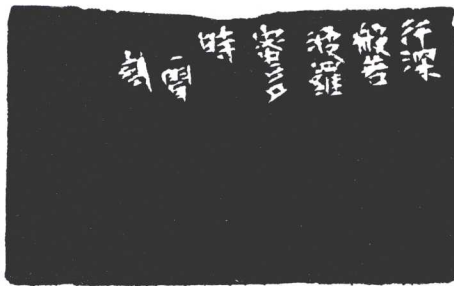 行深
般若
波羅
蜜多
時